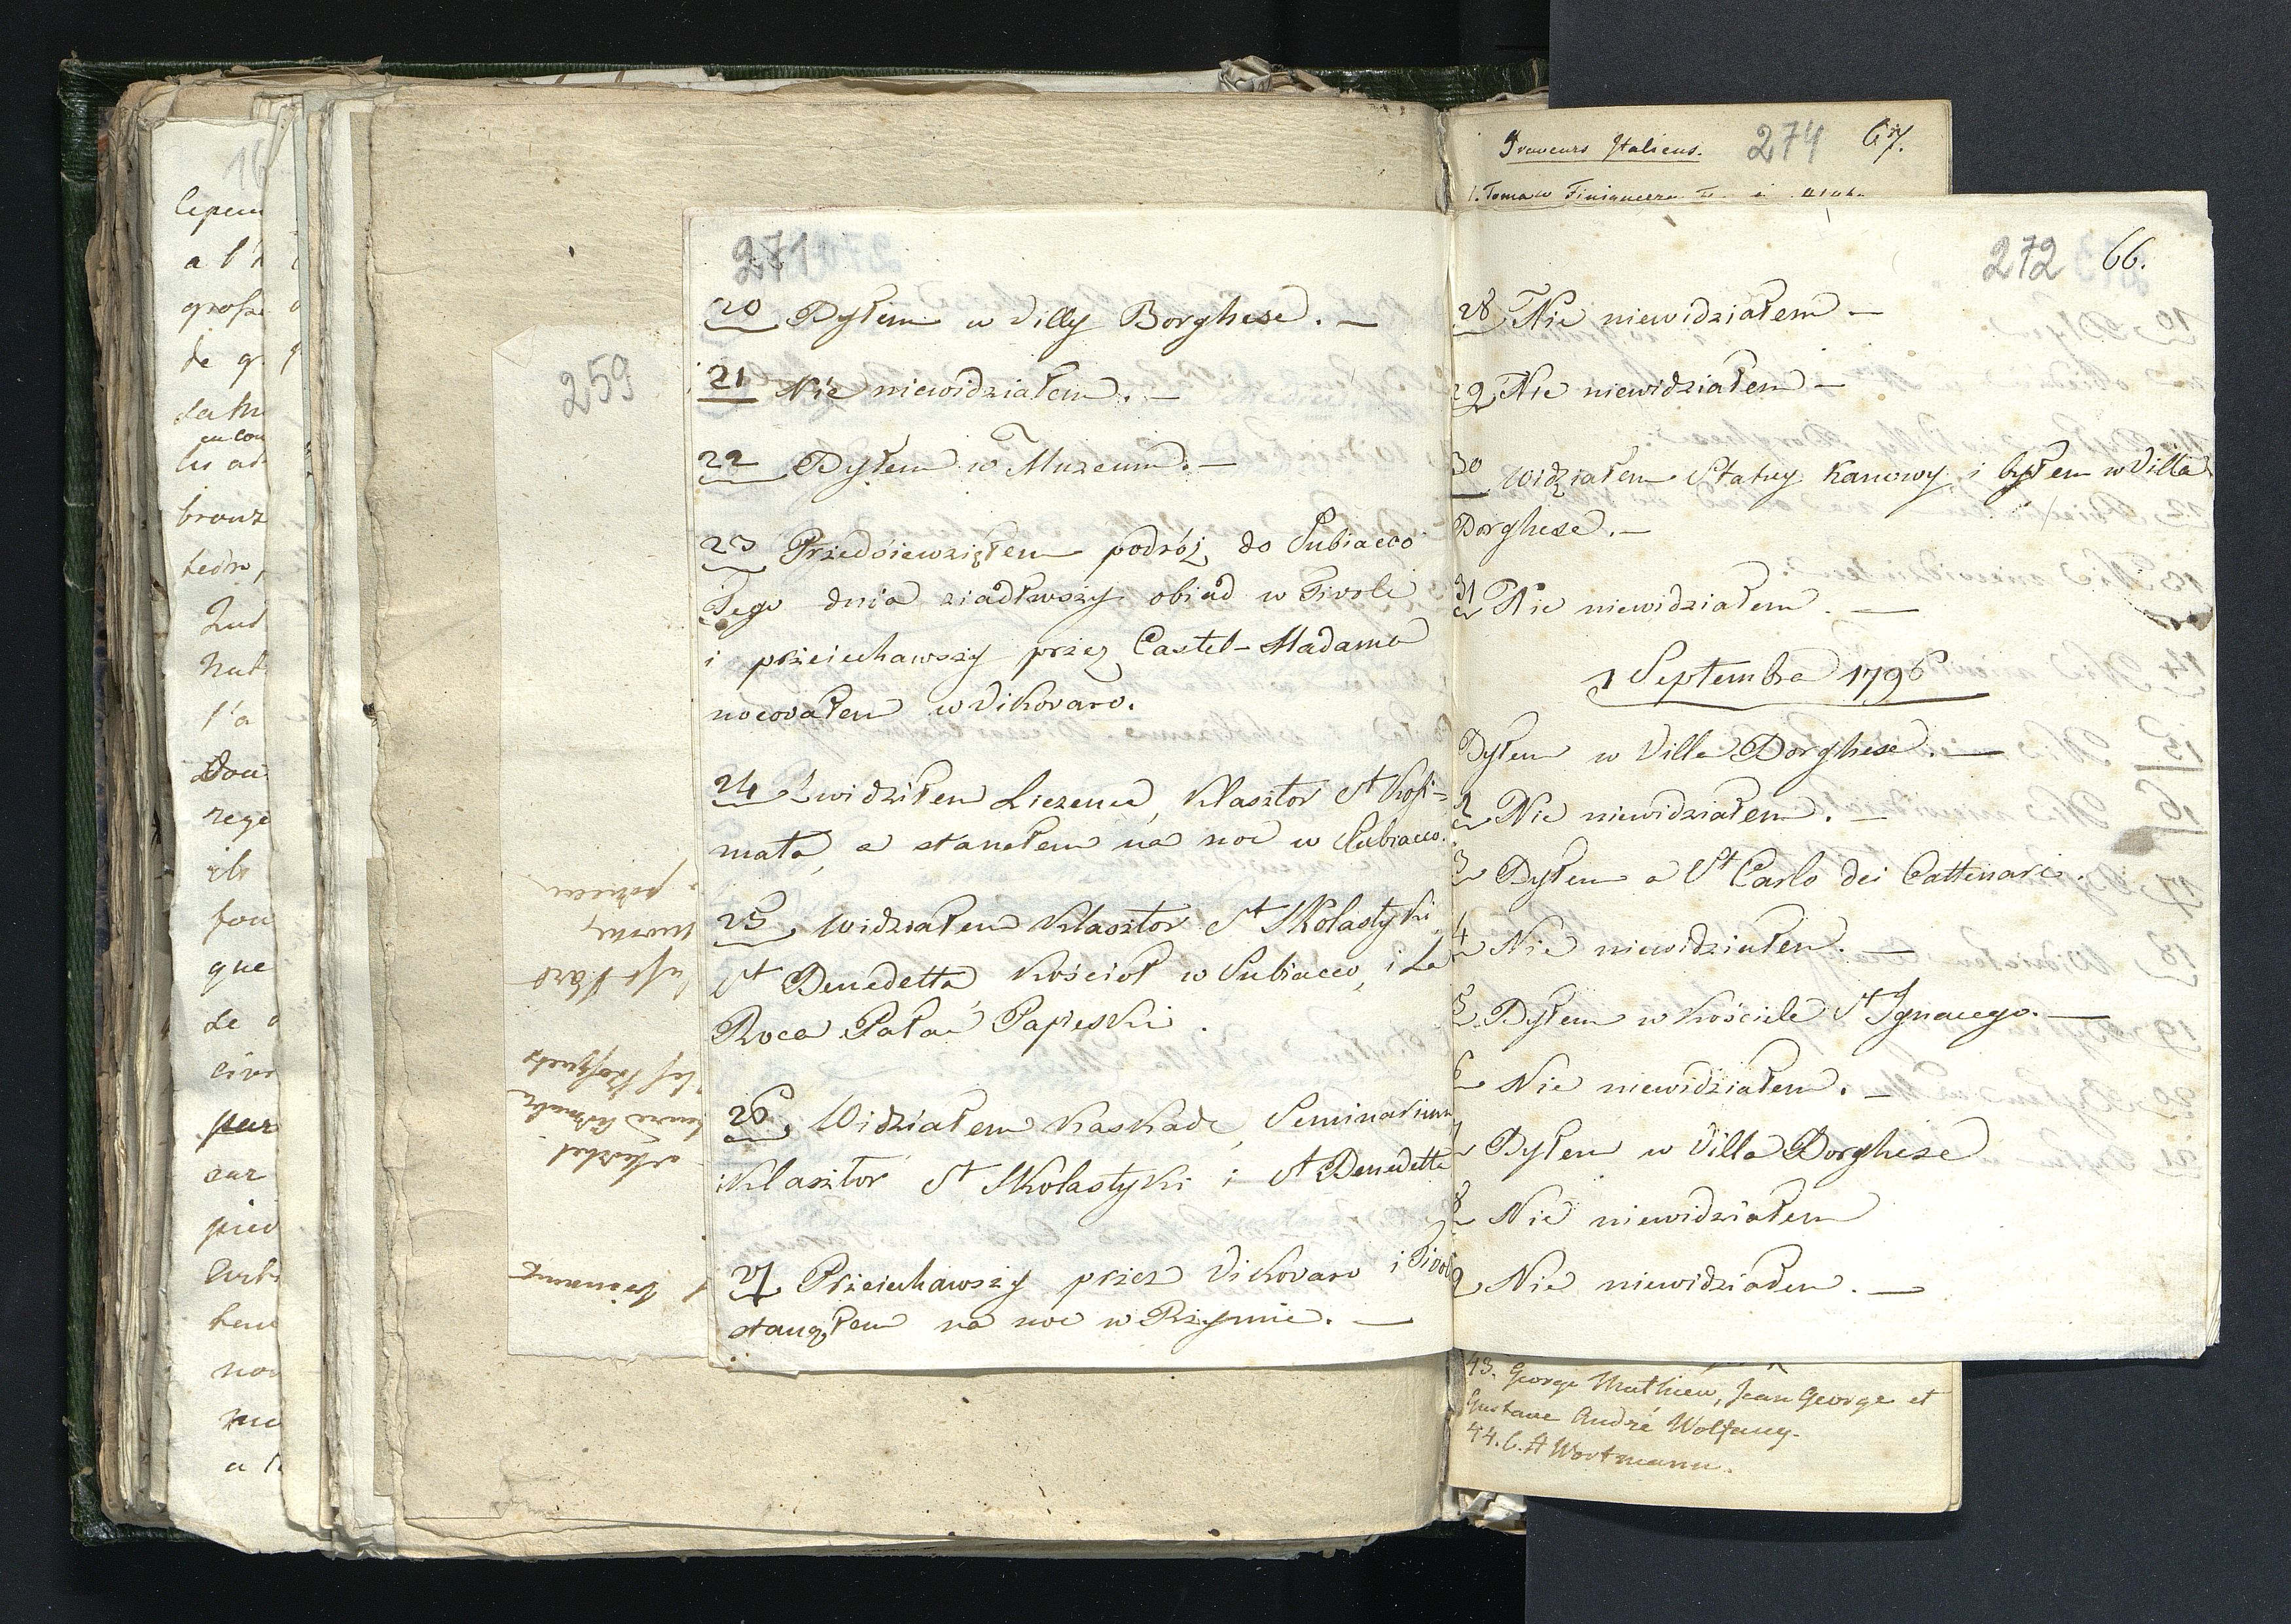 271
20 Byłem w Villy Borghese. —
21 Nic niewidziałem. —
22 Byłem w Muzeum. —
23 Przedsiewziąłem podróż do Subiacco
Tego dnia ziadłwszy obiad w Tivoli
i przeiechawszy przez Castel-Madama
nocowałem w Vikovaro.
24 Zwidziłem Liczenzę, Klasztor St Kosi=
mata, a stanełem na noc w Subiacco.
25 Widziałem Klasztor St Skolastyki
St Benedetta Kościoł w Subiacco, i La
Roca Pałac Papieski.
26 Widziałem Kaskadę, Seminarium
i Klasztor St Skolastyki i St Benedetta
27 Przeiechawszy przez Vikovaro i Tivoli
stanąłem na noc w Rzymie. —
272 66.
28 Nic niewidziałem —
29 Nic niewidziałem —
30 Widziałem Statuy Kanowy i byłem w Villa
Borghese. —
31 Nic niewidziałem. —
1 Septembra 1796
Byłem w Villa Borghese. —
2 Nic niewidziałem. —
3 Byłem a St Carlo dei Cattinari.
4 Nic niewidziałem. —
5 Byłem w Kościele St Ignacego. —
6 Nic niewidziałem. —
7 Byłem w Villa Borghese
8 Nic niewidziałem
9 Nic niewidziałem. —
Graveurs Italiens. 274 67.
1. Tomaso Finiguerra
43. George Mathieu, Jean George et
Gustave André Wolfang.
44. C. A Wortmann.
259
16
a l'
grosse
de g
bronz
l'a
que
par
sur